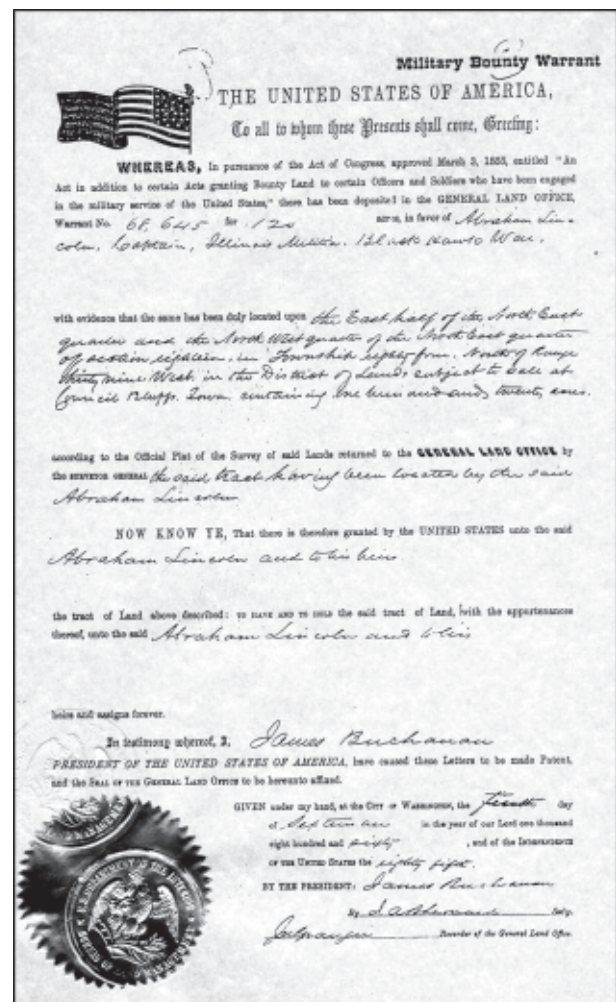 Military Bounty Warrant
THE UNITED STATES OF AMERICA,
To all to whom these Presents shall come, Greeting:
WHEREAS, In pursuance of the Act of Congress, approved March 3, 1855, entitled "An
Act in addition to certain Acts granting Bounty Land to certain Officers and Soldiers who have been engaged
in the military service of the United States," there has been deposited in the GENERAL LAND OFFICE,
Warrant No. 68,645 for 120 acres, in favor of Abraham Lin-
coln, Captain, Illinois Militia, Black Hawk War,
with evidence that the same has been duly located upon the East half of the North East
quarter and the North West quarter of the North East quarter
of section eighteen, in Township eighty four, North of Range
thirty nine West in the District of Lands subject to sale at
Council Bluffs, Iowa containing one hundred and twenty acres.
according to the Official Plat of the Survey of said Lands returned to the GENERAL LAND OFFICE by
the SURVEYOR GENERAL the said tract having been located by the said
Abraham Lincoln
NOW KNOW YE, That there is therefore granted by the UNITED STATES unto the said
Abraham Lincoln and to his heirs
the tract of Land above described: TO HAVE AND TO HOLD the said tract of Land, with the appurtenances
thereof, unto the said Abraham Lincoln and to his
heirs and assigns forever.
In testimony whereof, I, James Buchanan
PRESIDENT OF THE UNITED STATES OF AMERICA, have caused these Letters to be made Patent,
and the SEAL OF THE GENERAL LAND OFFICE to be hereunto affixed.
GIVEN under my hand, at the CITY OF WASHINGTON, the Tenth day
of September in the year of our Lord one thousand
eight hundred and sixty, and of the INDEPENDENCE
OF THE UNITED STATES the eighty fifth.
BY THE PRESIDENT: James Buchanan
By Sec'y.
Recorder of the General Land Office.